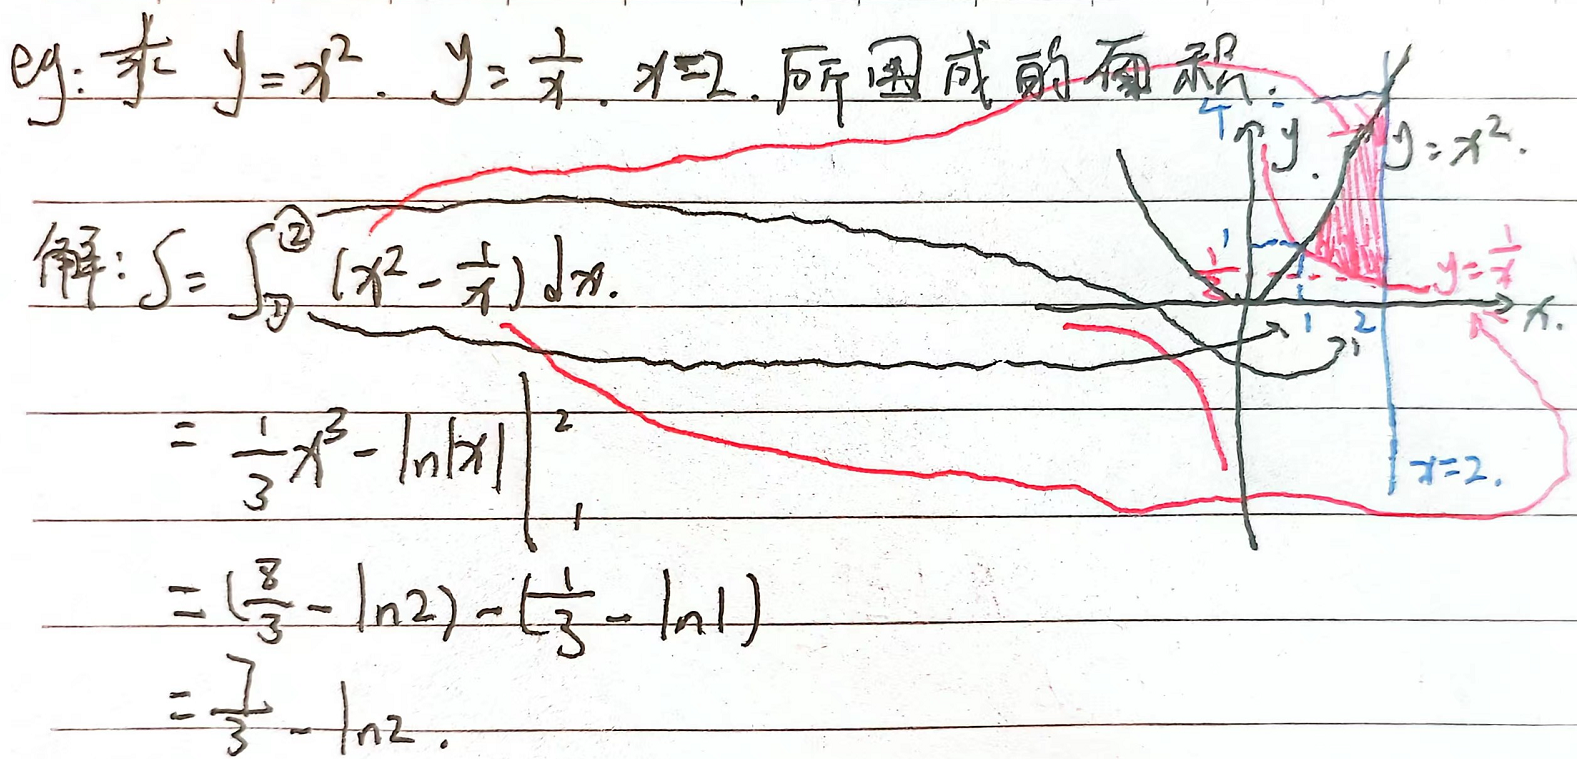 eg: 求 y=x². y=1/x. x=2. 所围成的面积.
解: S= ∫₁² (x² - 1/x) dx.
= 1/3 x³ - ln|x| |₁²
= (8/3 - ln2) - (1/3 - ln1)
= 7/3 - ln2.
4 y. y=x².
1
1/2 y=1/x
1 2 x.
x=2.